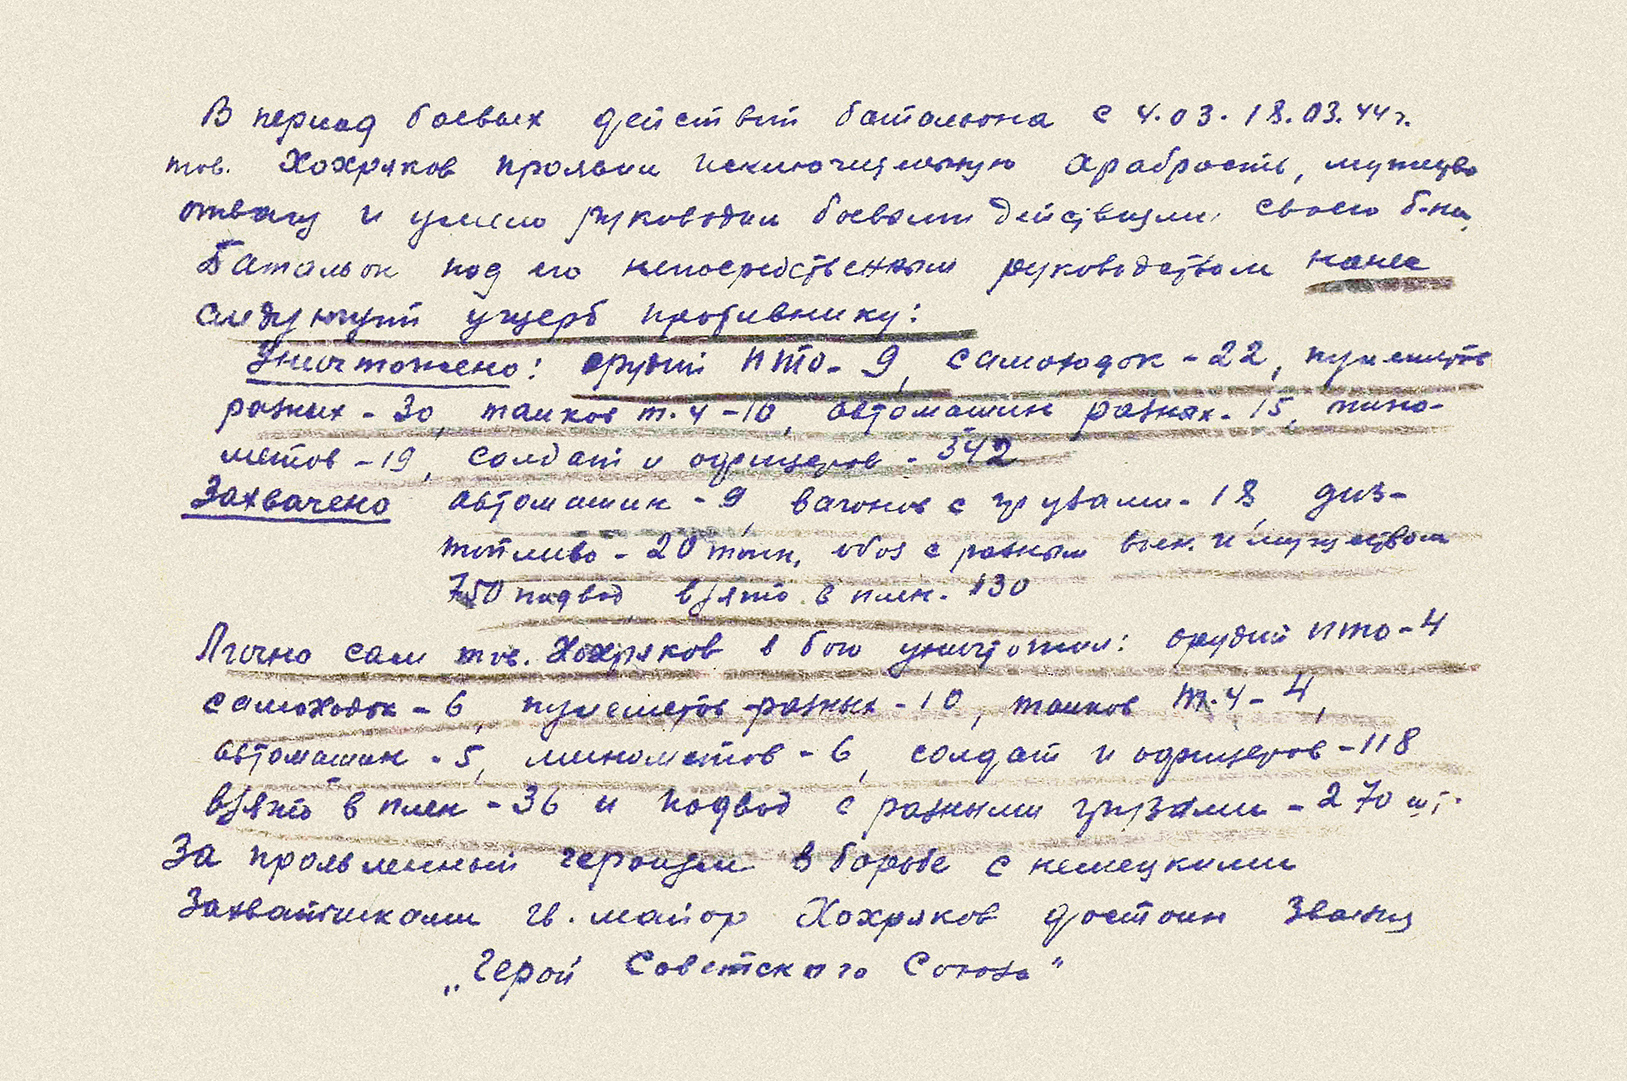 В период боевых действий батальона с 4.03. 18.03.44 г.
тов. Хохряков проявил исключительную храбрость, мужество
отвагу и умело руководил боевыми действиями своего б-на,
Батальон под его непосредственным руководством нанес
следующий ущерб противнику:
Уничтожено: орудий ПТО - 9, самоходок - 22, пулеметов
разных - 30, танков т-4 - 10, автомашин разных - 15, мино-
метов - 19, солдат и офицеров - 342
Захвачено автомашин - 9, вагонов с грузами - 18, диз-
топливо - 20 тонн, обоз с разным воен. имуществом
750 подвод взято в плен - 130
Лично сам тов. Хохряков в бою уничтожил: орудий ПТО - 4
самоходок - 6, пулеметов разных - 10, танков Т-4 - 4,
автомашин - 5, минометов - 6, солдат и офицеров - 118
взято в плен - 36 и подвод с разными грузами - 270 шт.
За проявленный героизм в борьбе с немецкими
захватчиками гв. майор Хохряков достоин звания
„Герой Советского Союза"